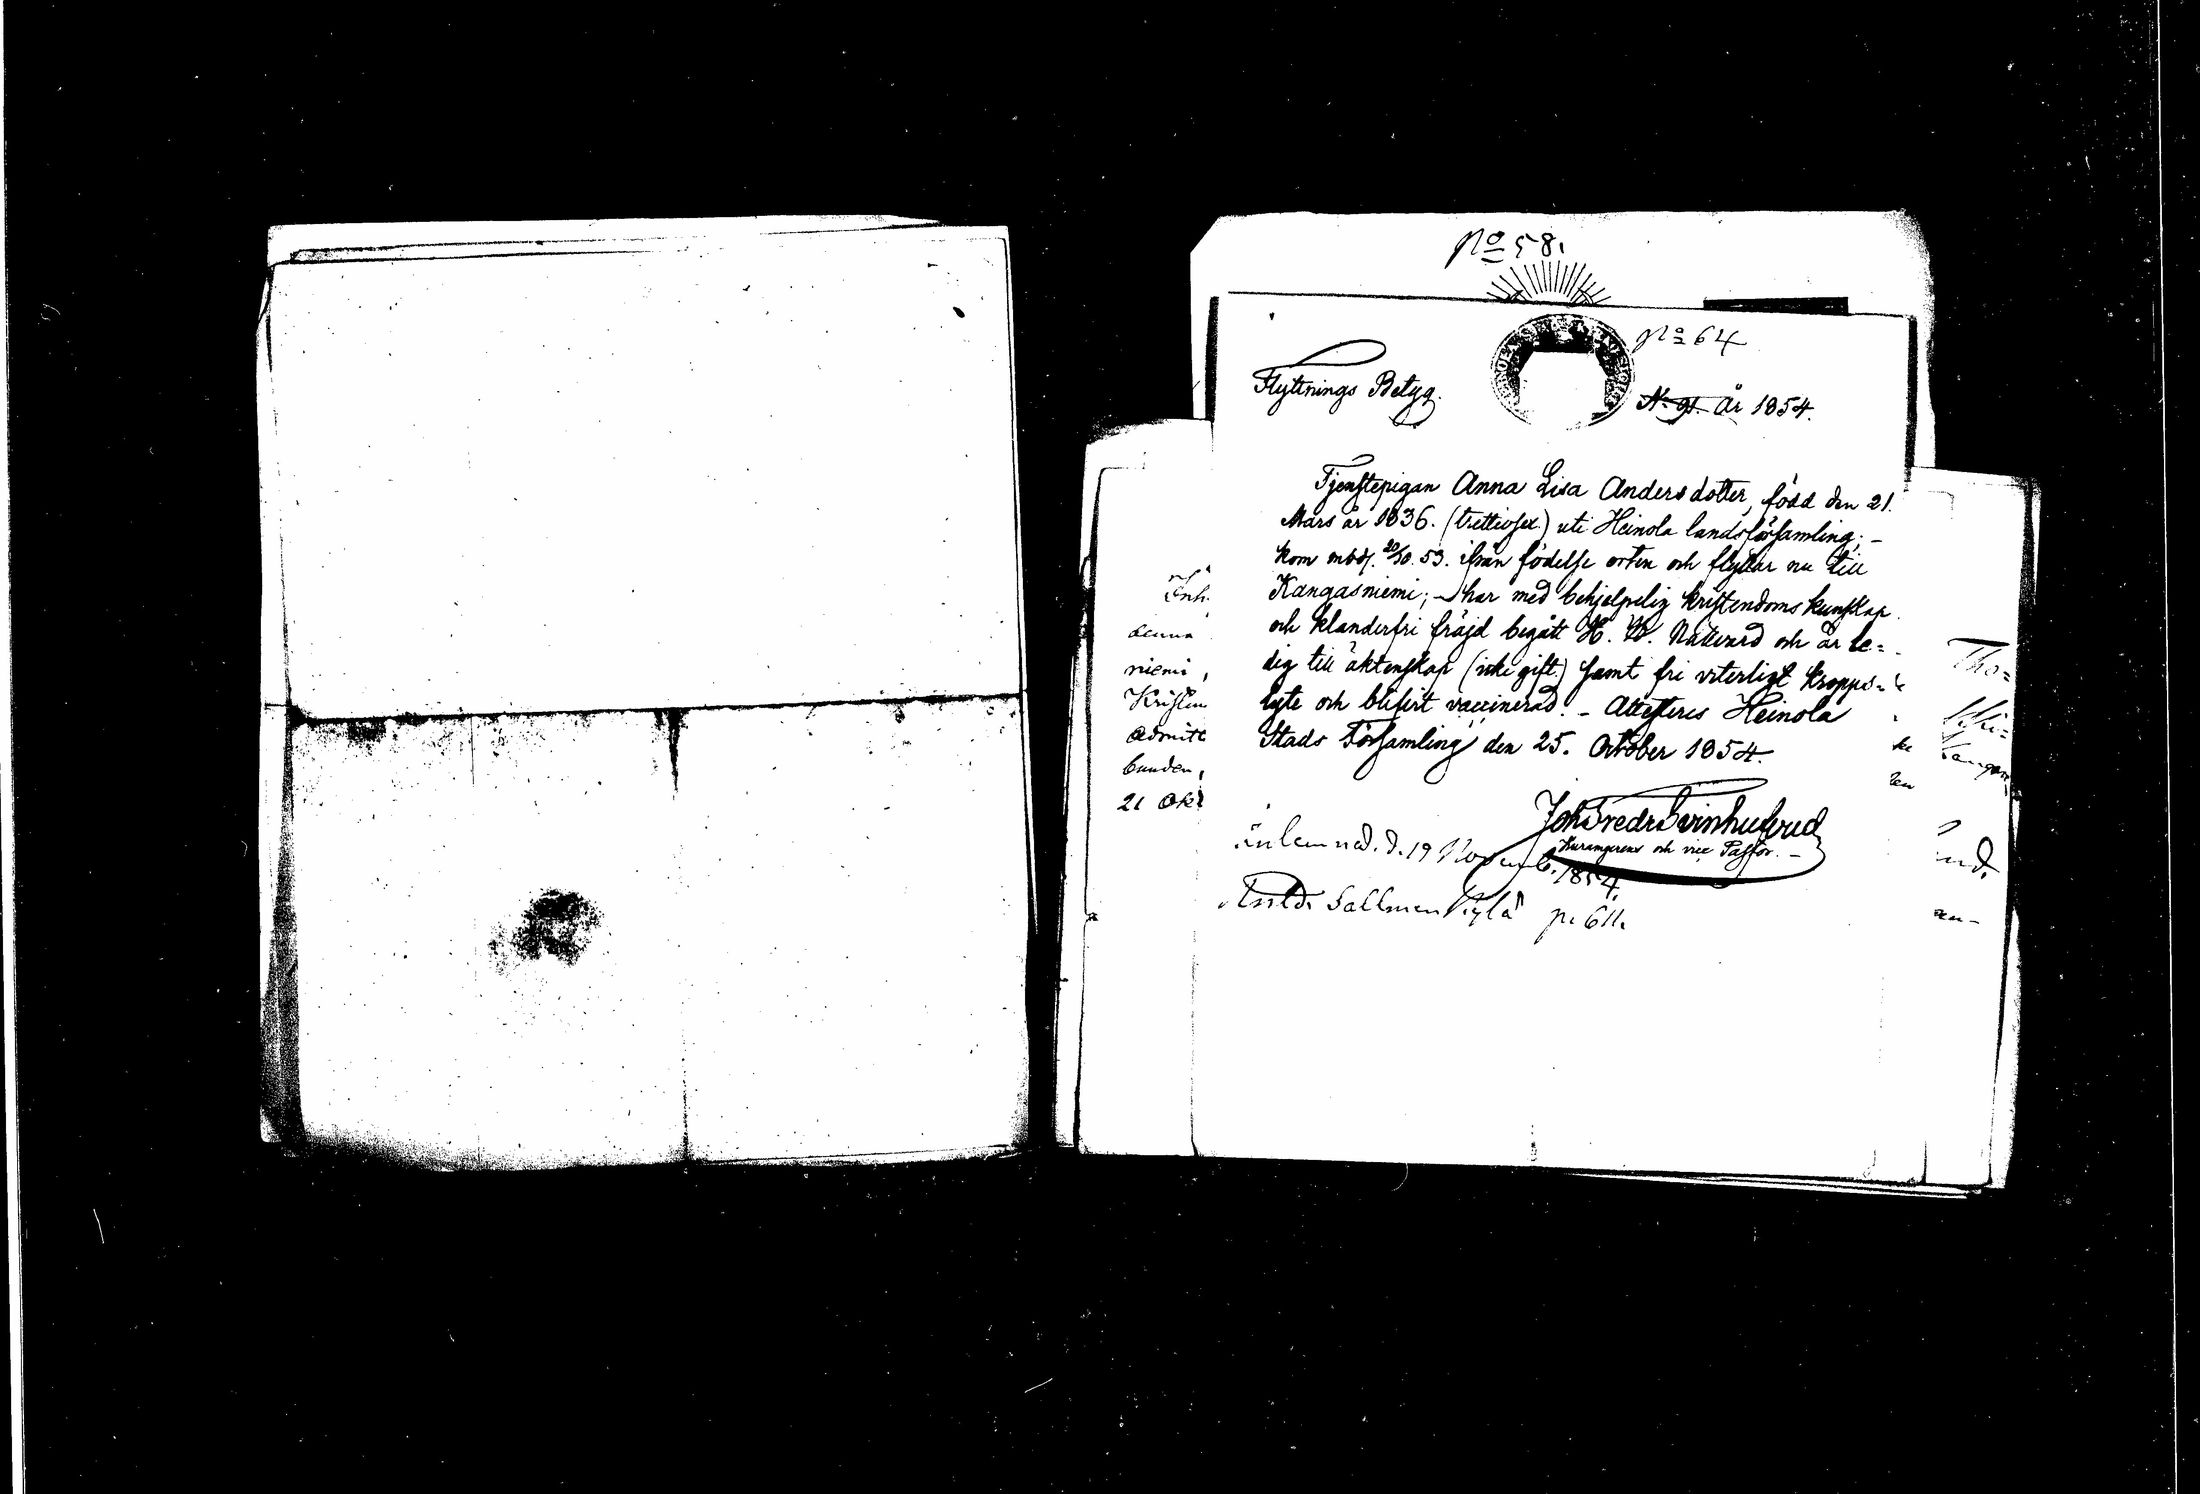 No 58.
No 64
Flyttnings Betyg.
N. 91. År 1854.
Tjenstepigan Anna Lisa Andersdotter, född den 21.
Mars år 1836. (trettiosex.) uti Heinola landsförsamling; –
kom mbdf. 20/10. 53. ifrån födelse orten och flyttar nu till
Kangasniemi; – har med behjelpelig kristendoms kunskap
och klanderfri fräjd begått H. H. Nattvard och är le=
dig till äktenskap (icke gift.) samt fri viterligt kropps=
lyte och blifvit vaccinerad. – Attesteras Heinola
Stads Församling den 25. October 1854.
Joh Fredr Svinhufvud
Kuramgerens och vice Pastor. –
inlemnad. d. 19 Novemb. 1854.
Sallmen Kylä p. 611.
Inh.
denna
niemi,
Kristen
admitt
bunden,
21 Okt
Tho=
Kangas
ke
en
nd.
en–